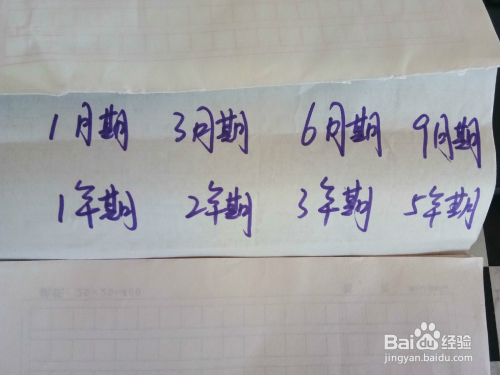 1月期 3月期 6月期 9月期
1年期 2年期 3年期 5年期
Baidu经验
jingyan.baidu.com